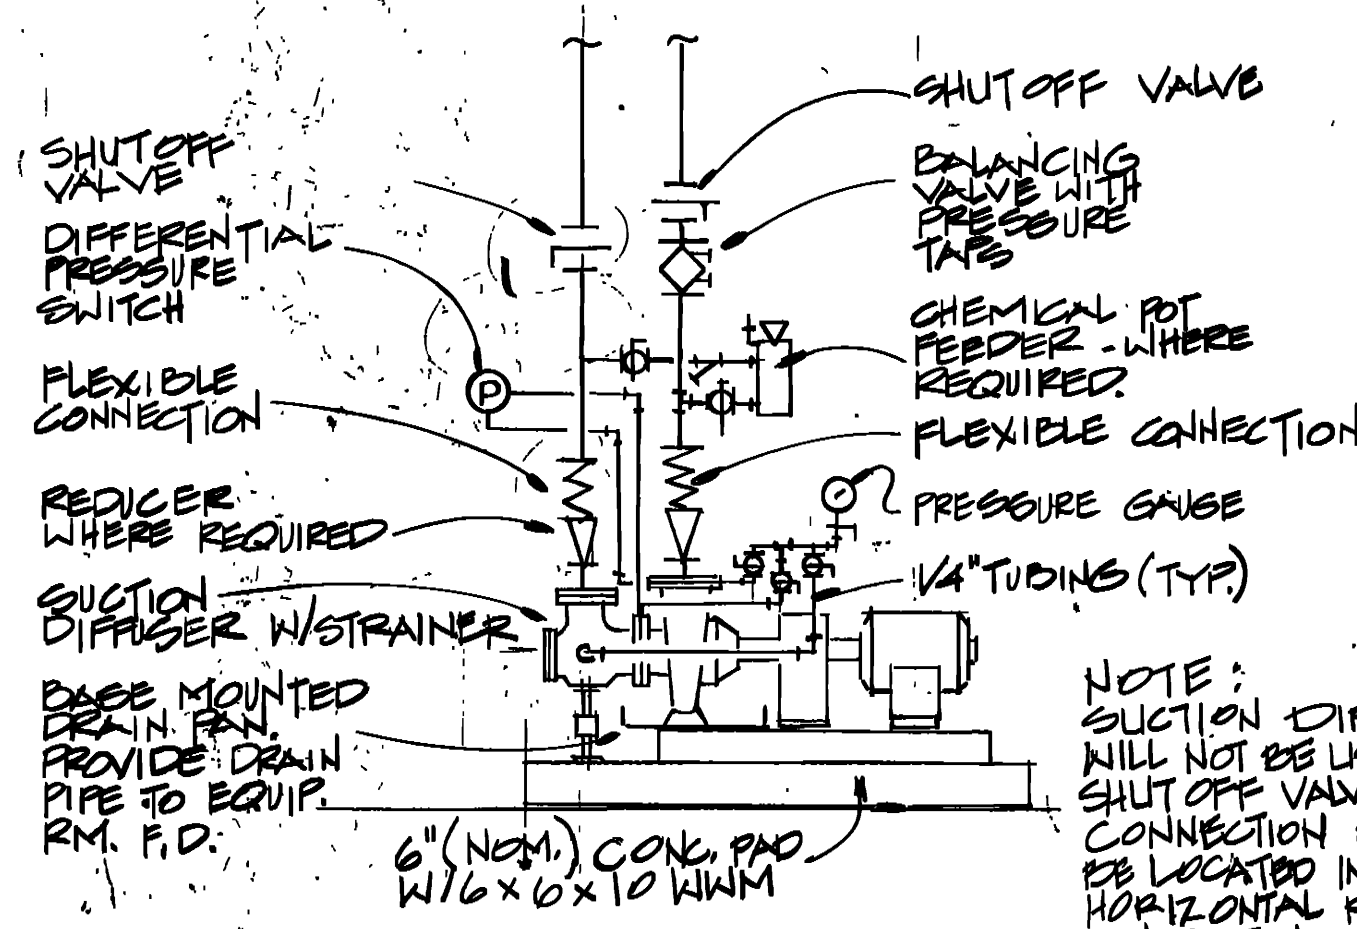 SHUTOFF
VALVE
DIFFERENTIAL
PRESSURE
SWITCH
FLEXIBLE
CONNECTION
REDUCER
WHERE REQUIRED
SUCTION
DIFFUSER W/STRAINER
BASE MOUNTED
DRAIN PAN.
PROVIDE DRAIN
PIPE TO EQUIP.
RM. F.D.
P
6" (NOM.) CONC. PAD
W/6 x 6 x 10 WWM
SHUTOFF VALVE
BALANCING
VALVE WITH
PRESSURE
TAPS
CHEMICAL POT
FEEDER - WHERE
REQUIRED.
FLEXIBLE CONNECTION
PRESSURE GAUSE
1/4" TUBING (TYP.)
NOTE:
SUCTION DIF
WILL NOT BE
SHUTOFF VALV
CONNECTION
BE LOCATED IN
HORIZONTAL